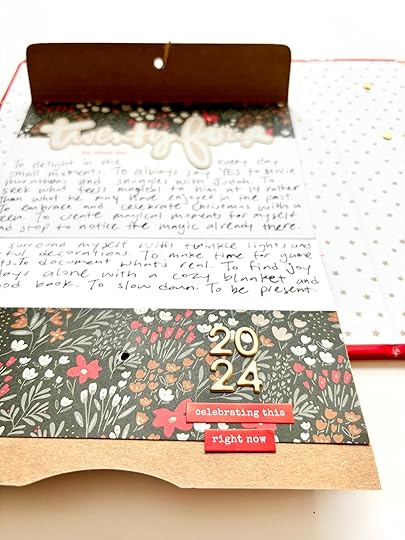 twenty four
To delight in the every day
small moments. To always say YES to movie
marathons and snuggles with Judah. To
seek what feels magical to him at 14 rather
than what he may have enjoyed in the past.
To embrace and celebrate Christmas with a
een. To create magical moments for myself
nd stop to notice the magic already there.
surround myself with twinkle lights and
ful decorations. To make time for game
ts. To document what's real. To find joy
days alone with a cozy blanket and
ood book. To slow down. To be present.
20
24
celebrating this
right now